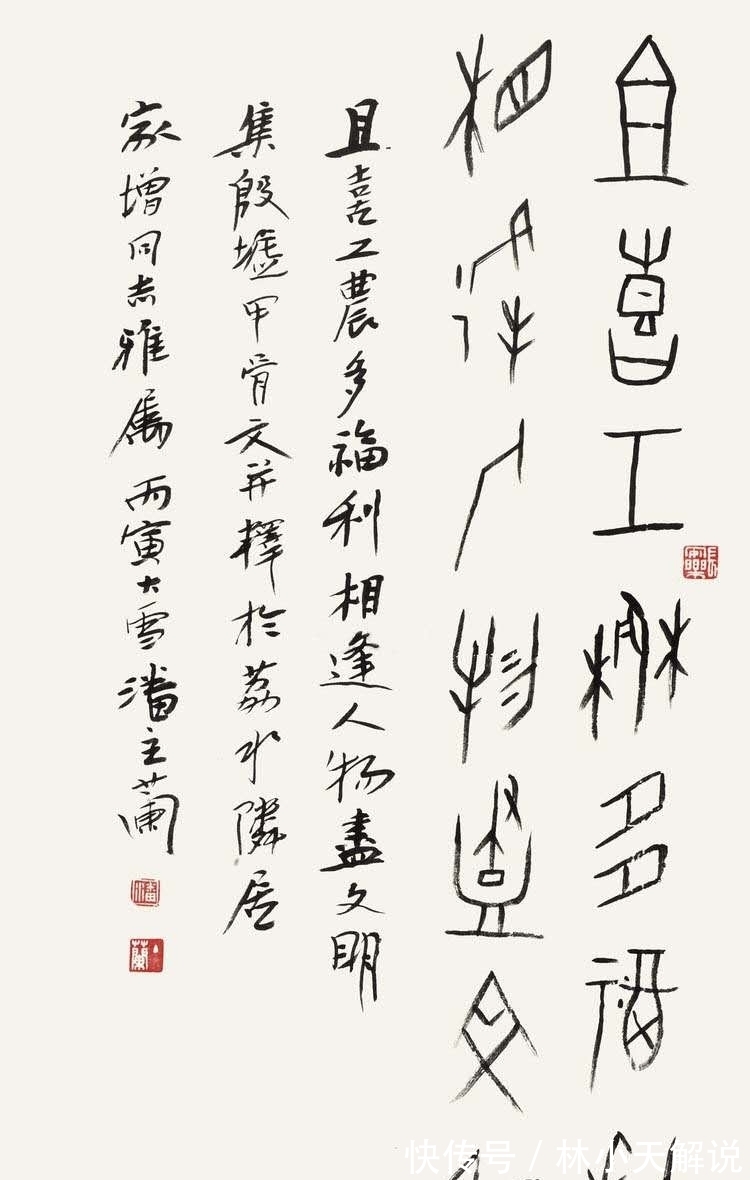 且喜工農多福
相逢人物盡文
且喜工農多福利相逢人物盡文明
集殷墟甲骨文并釋於荔水隣居
家增同志雅屬 丙寅大雪潘主蘭
長樂
潘
主蘭
快传号 / 林小天解说